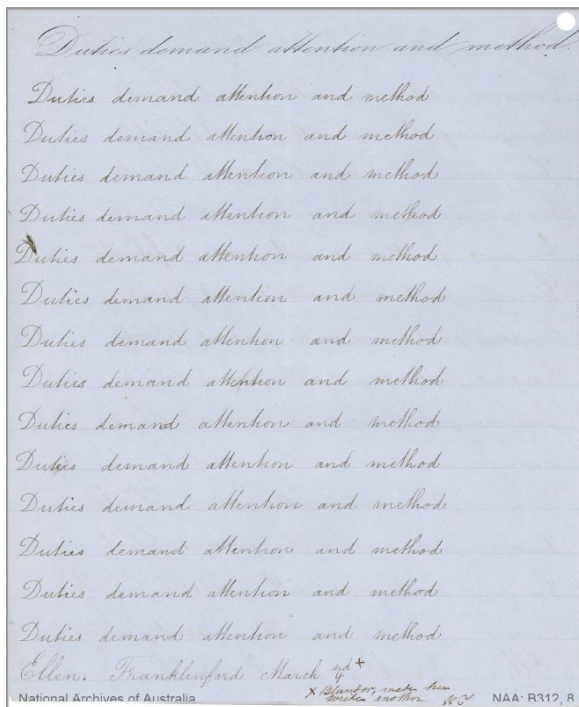 Duties demand attention and method.
Duties demand attention and method
Duties demand attention and method
Duties demand attention and method
Duties demand attention and method
Duties demand attention and method
Duties demand attention and method
Duties demand attention and method
Duties demand attention and method
Duties demand attention and method
Duties demand attention and method
Duties demand attention and method
Duties demand attention and method
Duties demand attention and method
Duties demand attention and method
Ellen. Franklinford March
x Blunder, made her
write another
National Archives of Australia NAA: B312, 8